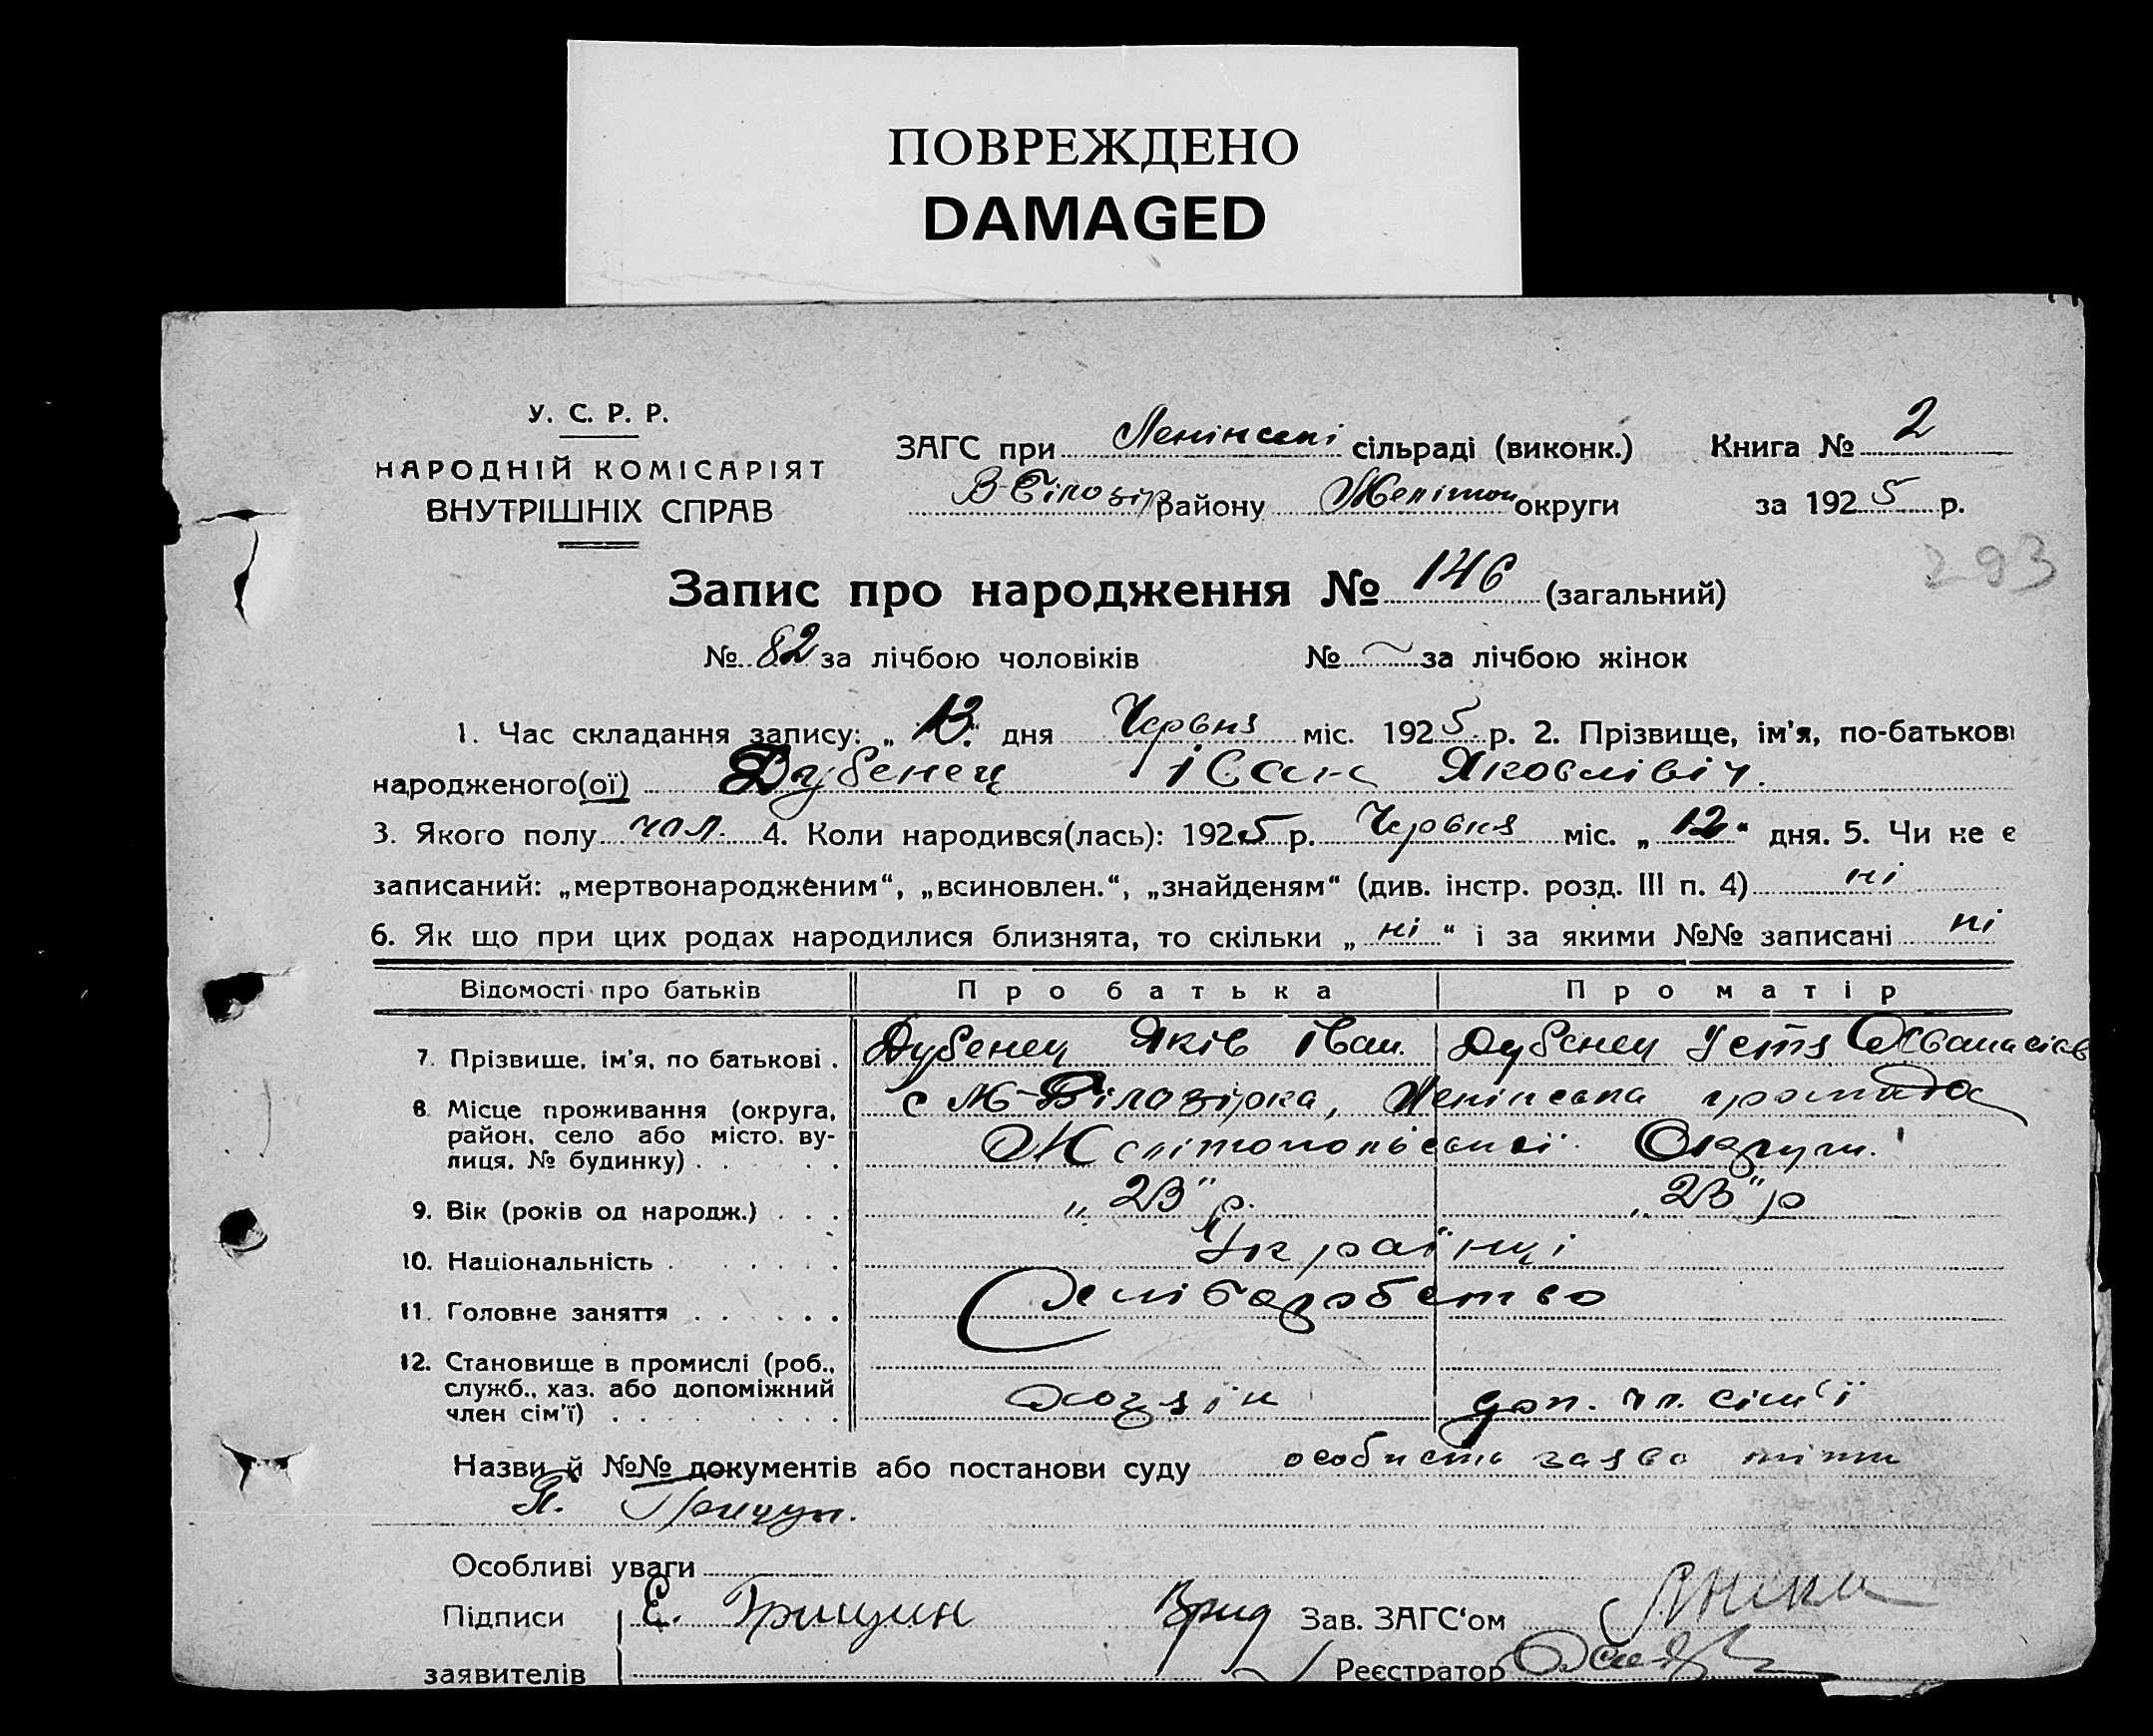 ПОВРЕЖДЕНО
DAMAGED
У. С. Р. Р.
НАРОДНІЙ КОМІСАРІЯТ
ВНУТРІШНІХ СПРАВ
ЗАГС при Ленінскі сільраді (виконк.) Книга № 2
В-Білозір району Мелітоп округи за 1925 р.
293
Запис про народження № 146 (загальний)
№ 82 за лічбою чоловіків № ~ за лічбою жінок
1. Час складання запису: „13" дня Червня міс. 1925 р. 2. Прізвище, ім'я, по-батькові
народженого(ої) Дубенец Іван Яковлівіч.
3. Якого полу чол. 4. Коли народився(лась): 1925 р. Червня міс. „12" дня. 5. Чи не є
записаний: „мертвонародженим", „всиновлен.", „знайденям" (див. інстр. розд. III п. 4) ні
6. Як що при цих родах народилися близнята, то скільки „ні" і за якими №№ записані ні
Відомості про батьків Про батька Про матір
7. Прізвище, ім'я, по батькові . Дубенец Яків Іван. Дубенец Устя Афанасієв
8. Місце проживання (округа, район, село або місто, вулиця, № будинку) . . . с М-Білозірка, Ленінська громада
Мелітопольської Округи.
9. Вік (років од народж.) . . . „23" р. „23" р
10. Національність . . . . . . Українці
11. Головне заняття . . . . . . Хліборобство
12. Становище в промислі (роб., служб., хаз. або допоміжний член сім'ї) . . . . . . . . Хозяін доп. чл. сім'ї
Назви й №№ документів або постанови суду особиста заява
Особливі уваги
Підписи Е. Грицин Врид Зав. ЗАГС'ом
заявителів Реєстратор